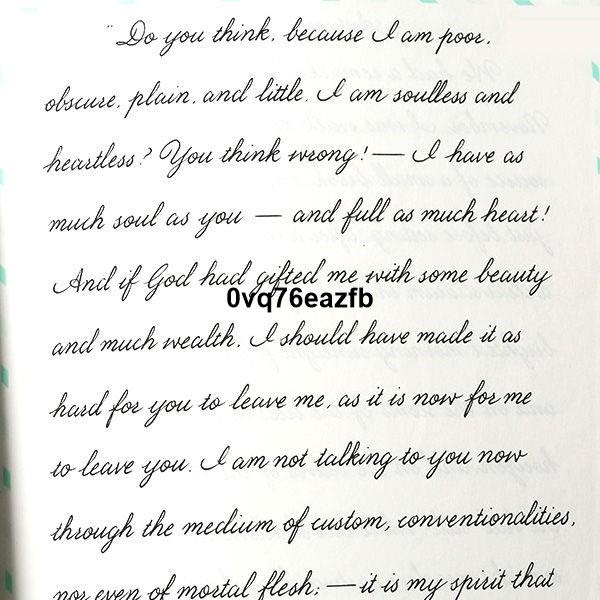 "Do you think, because I am poor,
obscure, plain, and little, I am soulless and
heartless? You think wrong! — I have as
much soul as you — and full as much heart!
And if God had gifted me with some beauty
0vq76eazfb
and much wealth, I should have made it as
hard for you to leave me, as it is now for me
to leave you. I am not talking to you now
through the medium of custom, conventionalities,
nor even of mortal flesh: — it is my spirit that